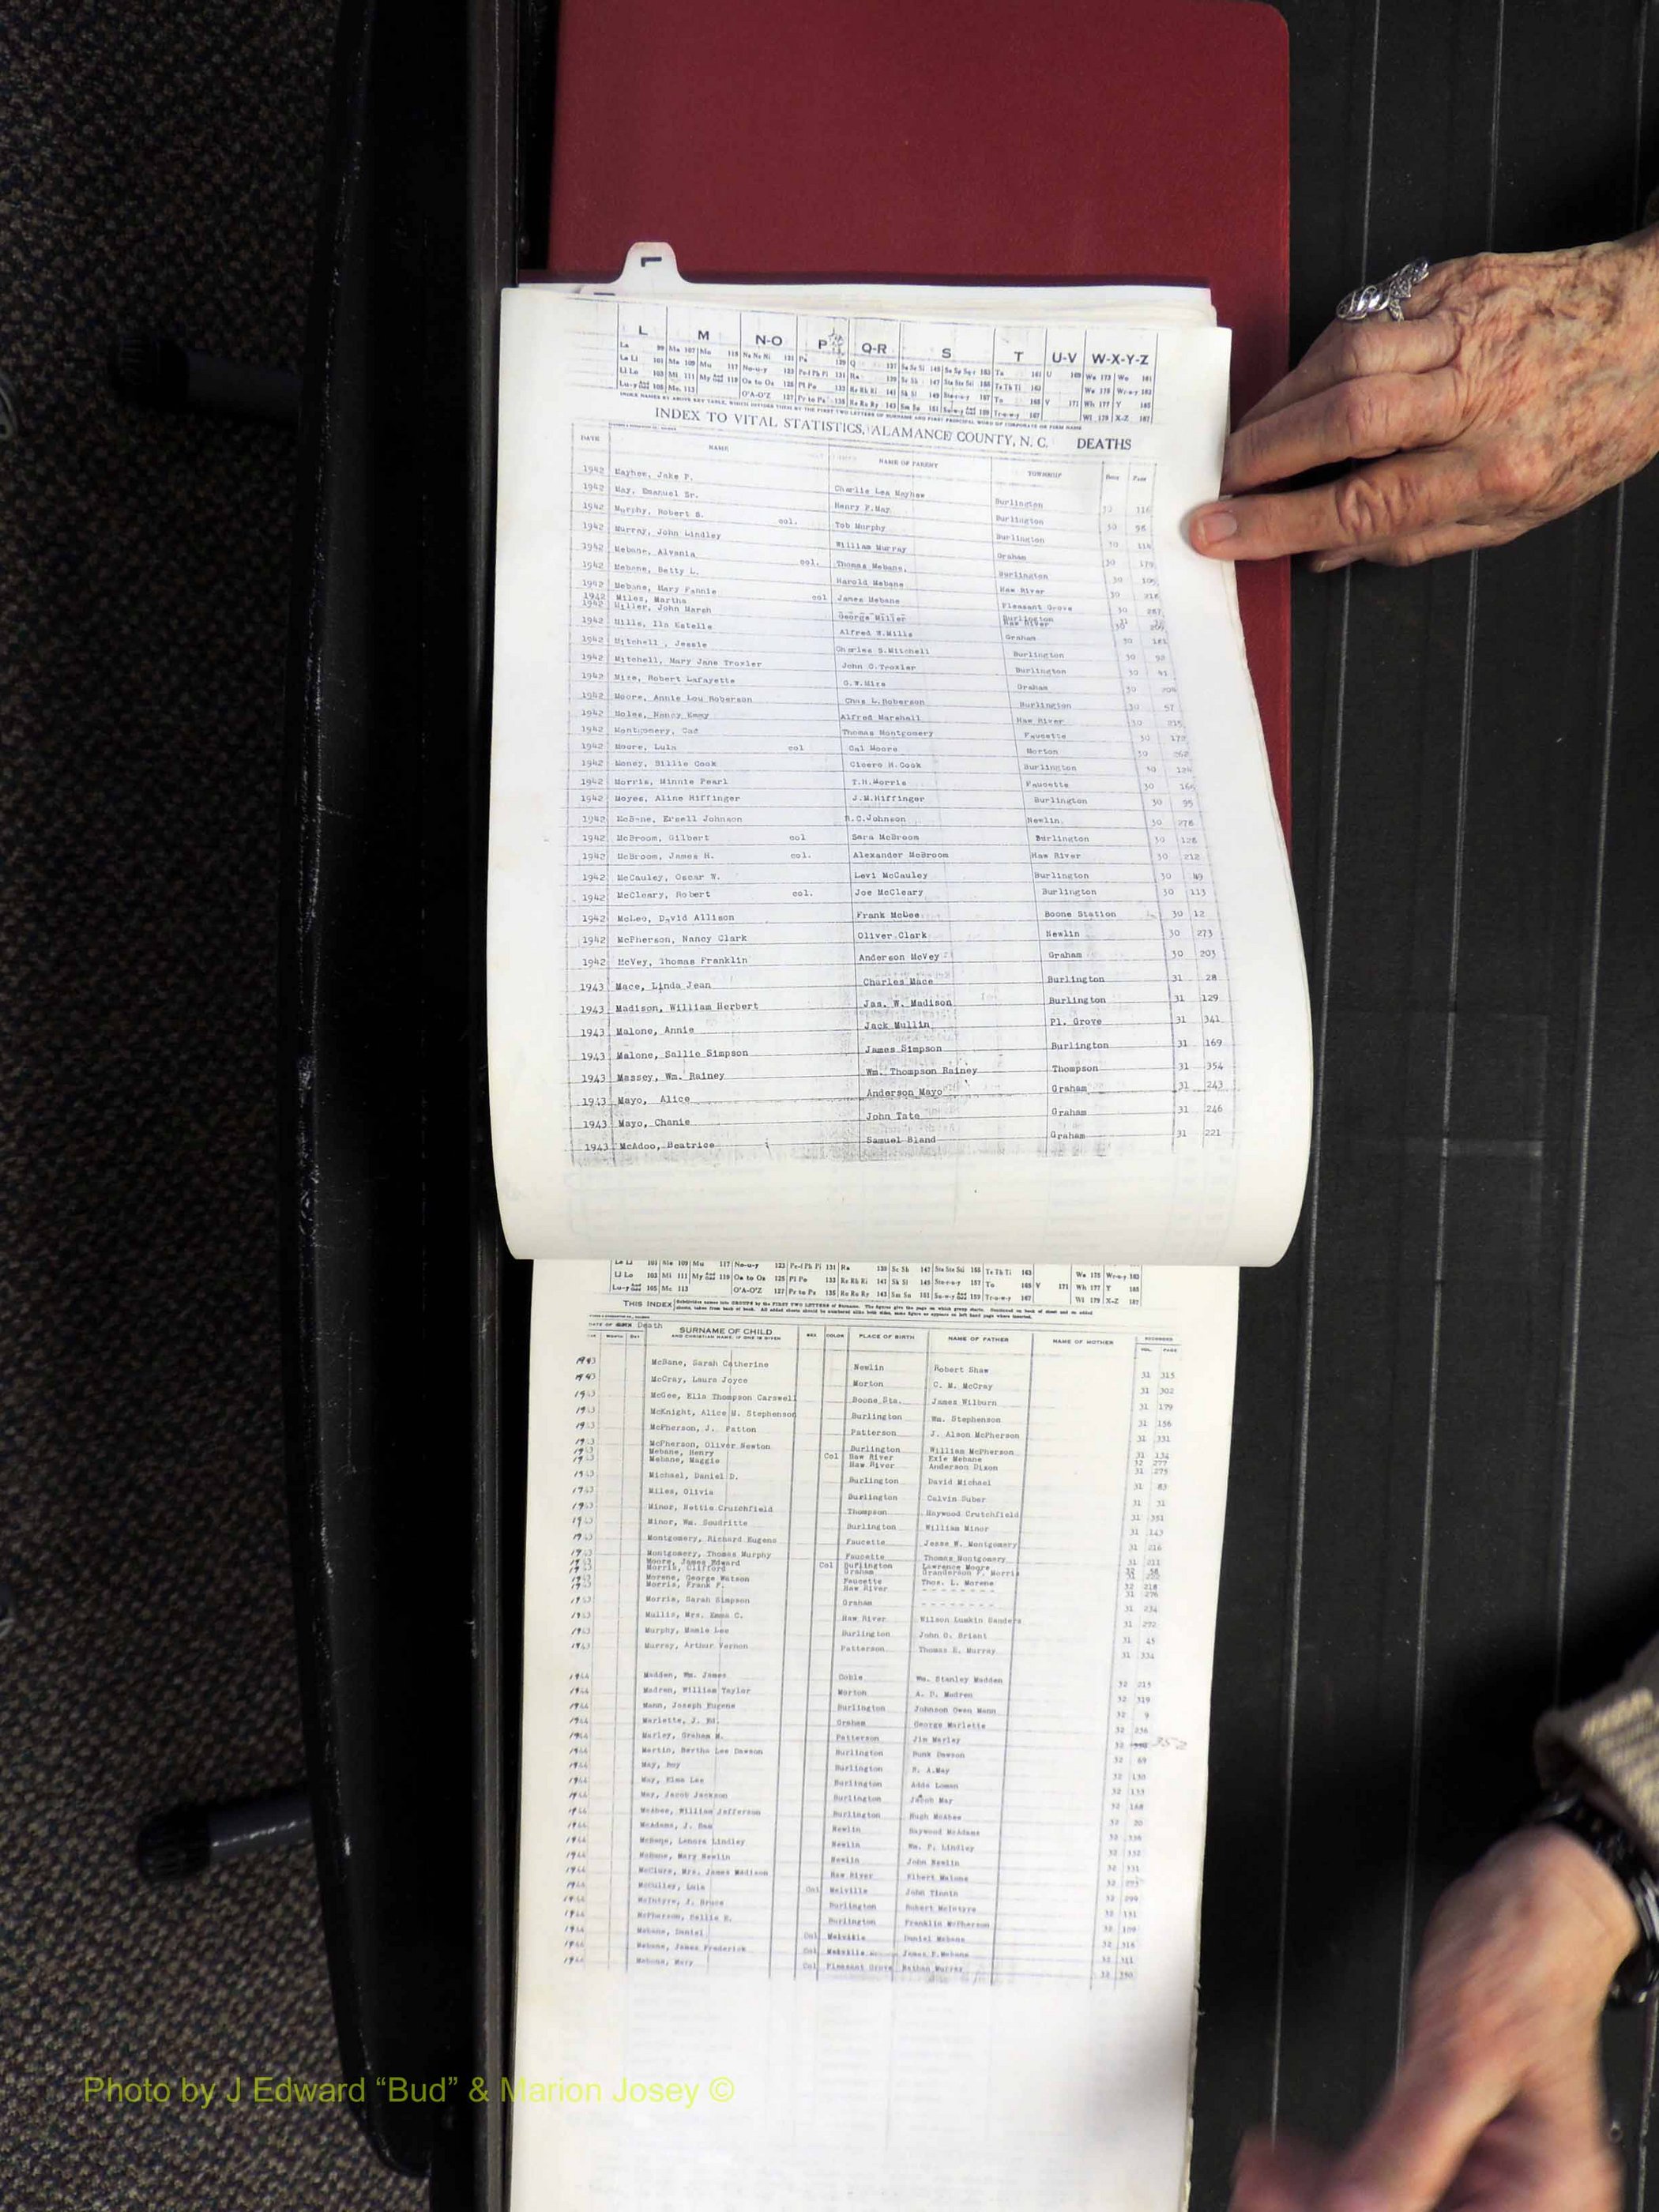 L M N-O P Q-R S T U-V W-X-Y-Z
INDEX NAMES BY ABOVE KEY TABLE, WHICH DIVIDES THEM BY THE FIRST TWO LETTERS OF SURNAME AND FIRST PRINCIPAL WORD OF CORPORATE OR FIRM NAME
INDEX TO VITAL STATISTICS, ALAMANCE COUNTY, N. C. DEATHS
DATE NAME NAME OF PARENT TOWNSHIP BOOK PAGE
1942 Mayhew, Jake P. Charlie Lea Mayhew Burlington 116
1942 May, Emanuel Sr. Henry P.May Burlington 30 96
1942 Murphy, Robert S. col. Tob Murphy Burlington 30 114
1942 Murray, John Lindley William Murray Graham 30 179
1942 Mebane, Alvania col. Thomas Mebane, Burlington 30
1942 Mebane, Betty L. Harold Mebane Haw River 30
1942 Mebane, Mary Fannie col James Mebane Pleasant Grove 30 287
1942 Miles, Martha Burlington
1942 Miller, John Marsh George Miller Haw River 30
1942 Mills, Ila Estelle Alfred W.Mills Graham 30
1942 Mitchell, Jessie Charles S.Mitchell Burlington 30
1942 Mitchell, Mary Jane Troxler John G.Troxler Burlington 30
1942 Mize, Robert Lafayette G.W.Mize Graham 30
1942 Moore, Annie Lou Roberson Chas L.Roberson Burlington 30 57
1942 Moles, Nancy Emmy Alfred Marshall Haw River 30 215
1942 Montgomery, Cad Thomas Montgomery Faucette 30 172
1942 Moore, Lula col Cal Moore Morton 30 262
1942 Money, Billie Cook Cicero H.Cook Burlington 30
1942 Morris, Minnie Pearl T.H.Morris Faucette 30
1942 Moyes, Aline Hiffinger J.M.Hiffinger Burlington 30 95
1942 McBane, Ersell Johnson R.C.Johnson Newlin. 30 278
1942 McBroom, Gilbert col Sara McBroom Burlington 30 128
1942 McBroom, James H. col. Alexander McBroom Haw River 30 212
1942 McCauley, Oscar W. Levi McCauley Burlington 30 49
1942 McCleary, Robert col. Joe McCleary Burlington 30 113
1942 McLeo, David Allison Frank McGee Boone Station 30 12
1942 McPherson, Nancy Clark Oliver Clark Newlin 30 273
1942 McVey, Thomas Franklin Anderson McVey Graham 30 203
1943 Mace, Linda Jean Charles Mace Burlington 31 28
1943 Madison, William Herbert Jas. W. Madison Burlington 31 129
1943 Malone, Annie Jack Mullin Pl. Grove 31 341
1943 Malone, Sallie Simpson James Simpson Burlington 31 169
1943 Massey, Wm. Rainey Wm. Thompson Rainey Thompson 31 354
1943 Mayo, Alice Anderson Mayo Graham 31 243
1943 Mayo, Chanie John Tate Graham 31 246
1943 McAdoo, Beatrice Samuel Bland Graham 31 221
THIS INDEX
DATE OF Death SURNAME OF CHILD SEX COLOR PLACE OF BIRTH NAME OF FATHER NAME OF MOTHER RECORDED
AND CHRISTIAN NAME, IF ONE IS GIVEN
MONTH DAY VOL. PAGE
1943 McBane, Sarah Catherine Newlin Robert Shaw 31 315
1943 McCray, Laura Joyce Morton C. M. McCray 31 302
1943 McGee, Ella Thompson Carswell Boone Sta. James Wilburn 31 179
1943 McKnight, Alice M. Stephenson Burlington Wm. Stephenson 31 156
1943 McPherson, J. Patton Patterson J. Alson McPherson 31 331
1943 McPherson, Oliver Newton Burlington William McPherson 31 134
1943 Mebane, Henry Col Haw River Exie Mebane 32 277
1943 Mebane, Maggie Haw River Anderson Dixon 31 275
1943 Michael, Daniel D. Burlington David Michael 31 83
1943 Miles, Olivia Burlington Calvin Suber 31 31
1943 Minor, Hettie Crutchfield Thompson Haywood Crutchfield 31 351
1943 Minor, Wm. Soudritte Burlington William Minor 31 143
1943 Montgomery, Richard Eugene Faucette Jesse W. Montgomery 31 216
1943 Montgomery, Thomas Murphy Faucette Thomas Montgomery 31 211
1943 Moore, James Edward Col Burlington Lawrence Moore 32 58
1943 Morris, Clifford Graham Granderson F. Morris 31
1943 Morene, George Watson Faucette Thos. L. Morene 32 218
1943 Morris, Frank F. Haw River - - - - - - - - 31 276
1943 Morris, Sarah Simpson Graham - - - - - - - - 31 234
1943 Mullis, Mrs. Emma C. Haw River Wilson Lumkin Sanders 31 272
1943 Murphy, Mamie Lee Burlington John O. Briant 31 45
1943 Murray, Arthur Vernon Patterson Thomas E. Murray 31 334
1944 Madden, Wm. James Coble Wm. Stanley Madden 32 215
1944 Madren, William Taylor Morton A. D. Madren 32 319
1944 Mann, Joseph Eugene Burlington Johnson Owen Mann 32 9
1944 Marlette, J. Ed. Graham George Marlette 32 236
1944 Marley, Graham M. Patterson Jim Marley 32 352
1944 Martin, Bertha Lee Dawson Burlington Bunk Dawson 32 69
1944 May, Boy Burlington R. A.May 32 130
1944 May, Elma Lee Burlington Adda Loman 32 133
1944 May, Jacob Jackson Burlington Jacob May 32 168
1944 McAbee, William Jefferson Burlington Hugh McAbee 32 20
1944 McAdams, J. Sam Newlin Haywood McAdams 32 336
1944 McBane, Lenora Lindley Newlin Wm. P. Lindley 32 332
1944 McBane, Mary Newlin Newlin John Newlin 32 331
1944 McClure, Mrs. James Madison Haw River Elbert Malone 32
1944 McCulley, Lula Col Melville John Tinnin 32 299
1944 McIntyre, J. Bruce Burlington Robert McIntyre 32 131
1944 McPherson, Sallie E. Burlington Franklin McPherson 32 109
1944 Mebane, Daniel Col Melville Daniel Mebane 32 316
1944 Mebane, James Frederick Col Melville James P.Mebane 32 311
1944 Mebane, Mary Col Pleasant Grove Nathan Murray 32 350
Photo by J Edward “Bud” & Marion Josey ©